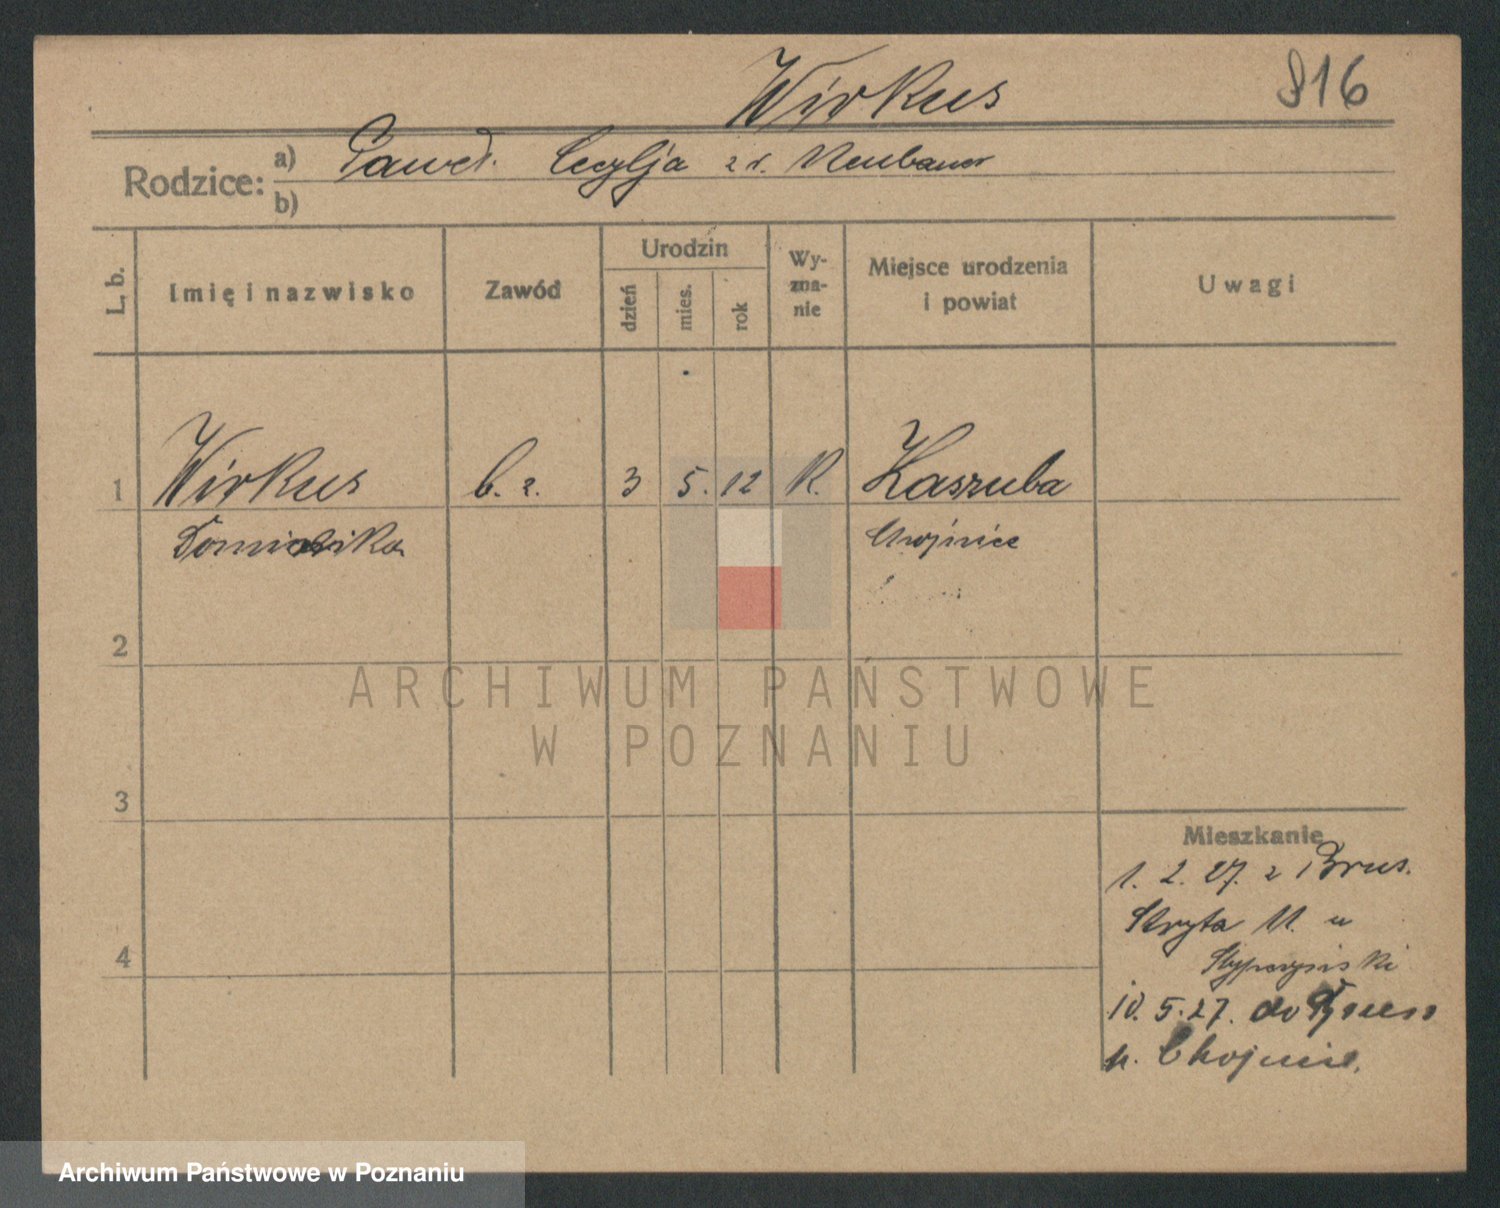 Wirkus 816
Rodzice: a) Paweł. Cecylja z d. Neubauer
b)
L. b. Imię i nazwisko Zawód Urodzin dzień mies. rok Wy-zna-nie Miejsce urodzenia i powiat Uwagi
1 Wirkus b. z. 3 5. 12 K. Kaszuba
Dominika Chojnice
2
3
4
Mieszkanie
1. 2. 27. z Brus.
11. u
10. 5. 27. do
p. Chojnice.
ARCHIWUM PAŃSTWOWE
W POZNANIU
Archiwum Państwowe w Poznaniu